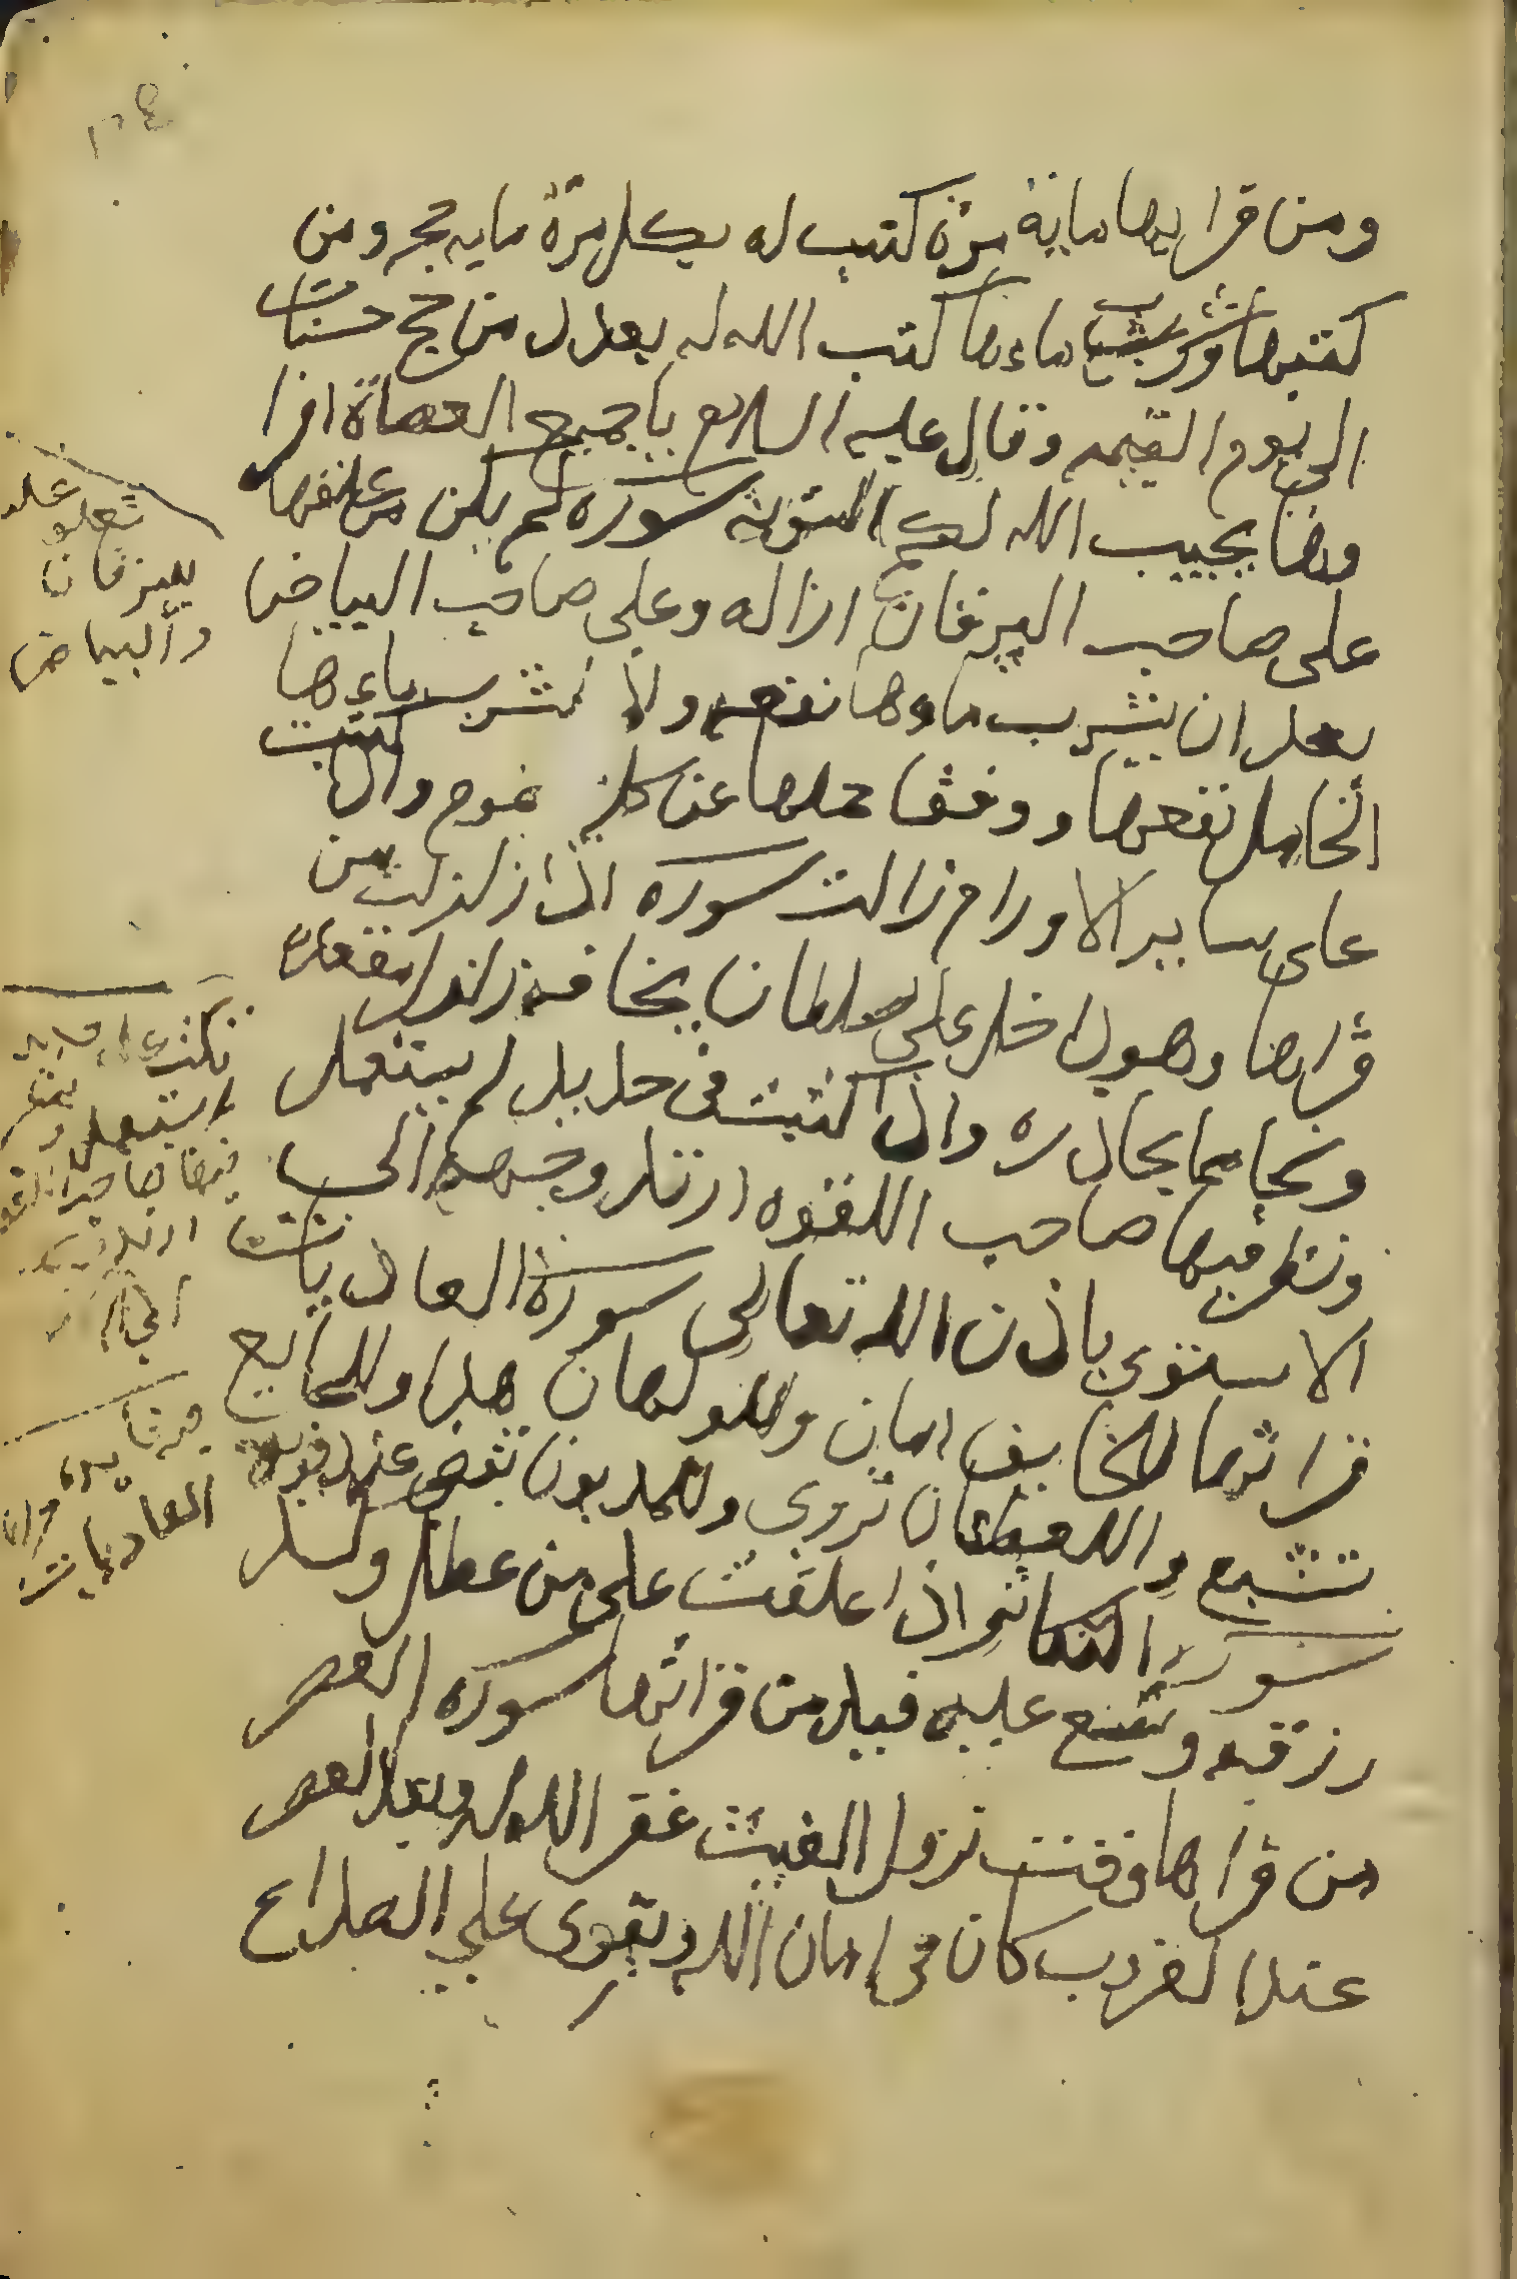 ومن قرايها ماية مرة كتب له بكل مرة مايه حجه ومن
كتبها وشرب ماءها كتب الله له بعدد من حج حسنات
الى يوم القيمه وقال عليه السلام يا جميع العصاة اقرا
وها يجيب الله لكم التوبه سورة لم يكن من علقها
على صاحب اليرقان ازاله وعلى صاحب البياض
بعد ان يشرب ماوها نفعه ولا تشرب ماءها
الحامل نفعها ووفقا حملها عن كل غموم واذا كتبت
على ساير الاورام زالت سورة اذا زلزلت من
قراها وهو داخل على سلطان يخافه زلزل مقعده
ونجا مما يحاذره واذا كتبت في حديد لم يستعمل
ونظر فيها صاحب اللقوه ارتد وجهه الى
الاستوى باذن الله تعالى سورة العاديات
قراتها للخايف امان وللولهان هدا وللجايع
تشبع وللعطشان تروى وللمديون تقضى عنه ديونه
سورة التكاثر اذا علقت على من عطل وكسد
رزقه وتفسح عليه قبيل من قراتها سورة العصر
من قراها وقت نزول الغيث غفر الله له وبعد العصر
عند الغروب كان في امان الله وتقوى على الصداع
تعلق على
لليرقان
والبياض
تكتب على حديد
لم يستعمل
العاديات